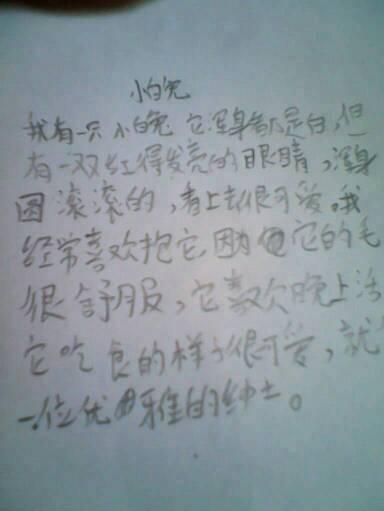 小白兔
我有一只小白兔 它浑身都是白,但
有一双红得发亮的眼睛,浑身
圆滚滚的,看上去很可爱。我
经常喜欢抱它,因为它的毛
很舒服,它喜欢晚上活
它吃食的样子很可爱,就
一位优雅的绅士。